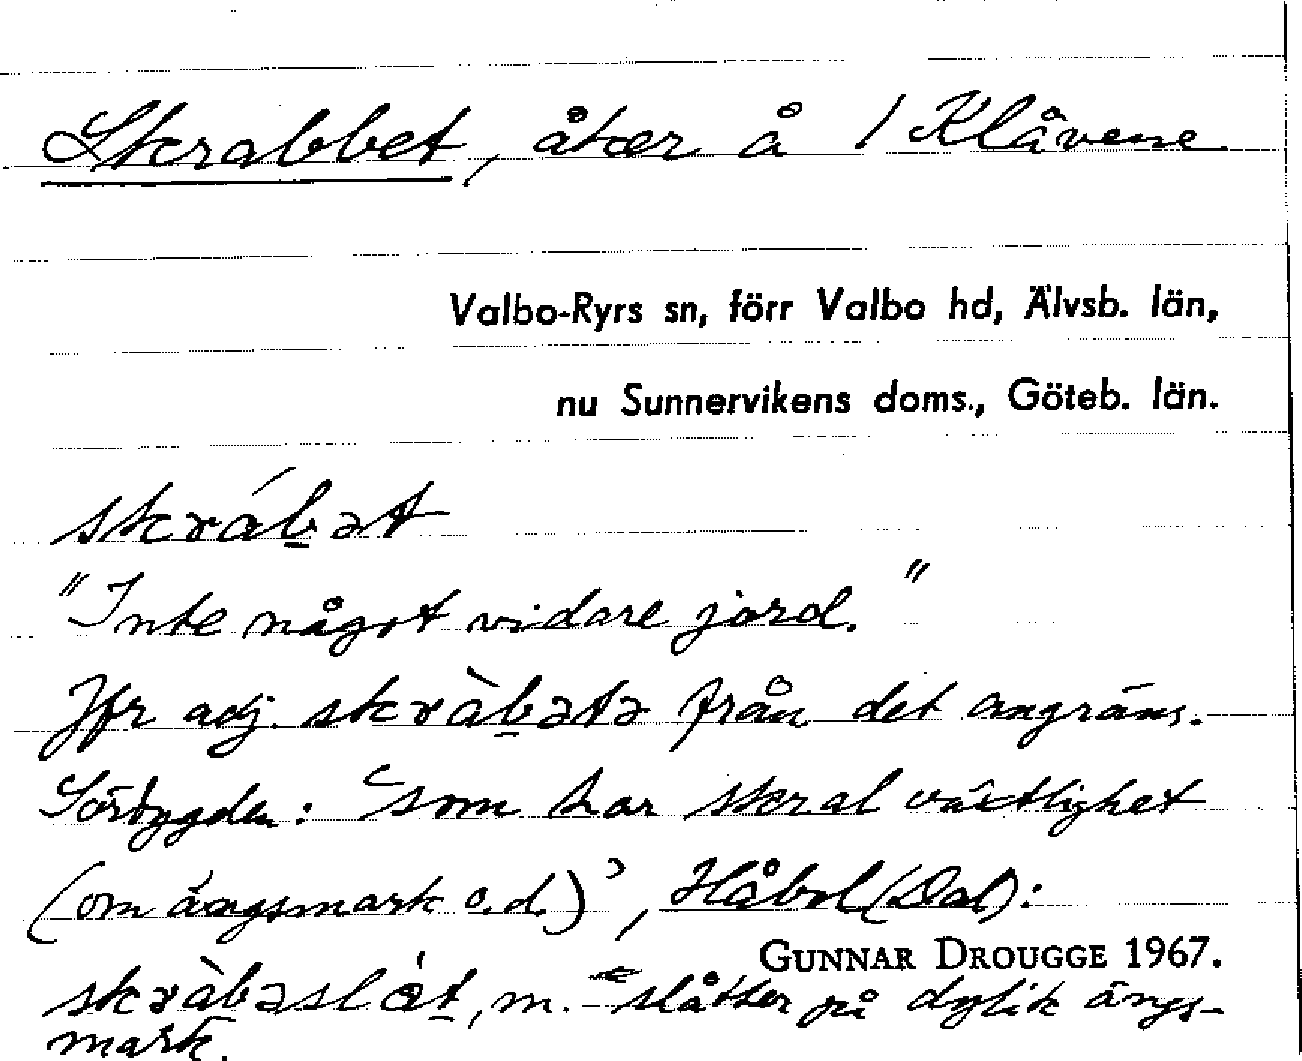 Skrabbet, åker å 1 Klåvene
Valbo-Ryrs sn, förr Valbo hd, Älvsb. län,
nu Sunnervikens doms., Göteb. län.
skrábət
"Inte något vidare jord."
Jfr adj. skràbətə från det angräns.
Sörbygden: 'som har skral växtlighet
(om ängsmark o.d.)', Håbol (Dal):
GUNNAR DROUGGE 1967.
skràbəslåt, m. slåtter på dylik ängs-
mark.